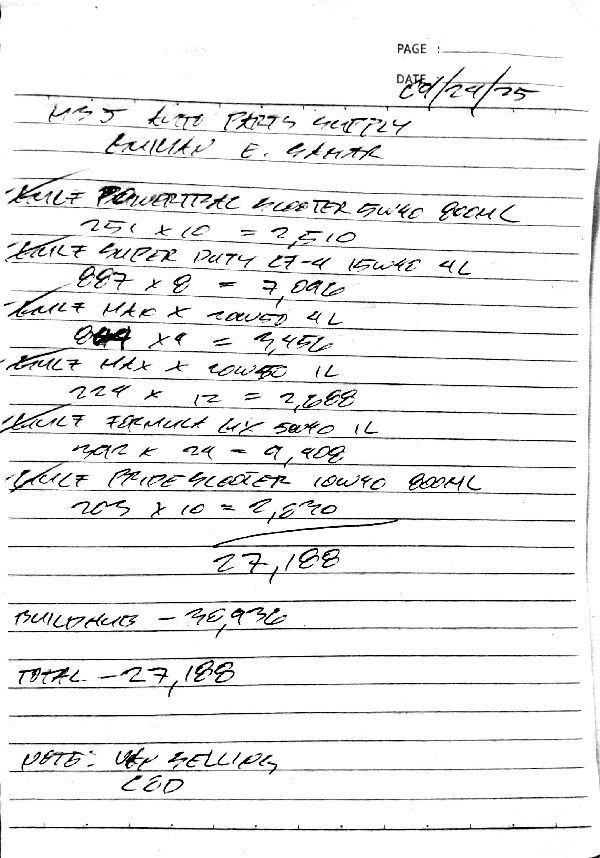 PAGE :
DATE : 09/29/25
MBJ AUTO PARTS SUPPLY
EMILIAN E. SAMAR
POWERTRAC SCOOTER 5W40 800ML
251 x 10 = 2,510
SUPER DUTY CF-4 15W40 4L
887 x 8 = 7,096
MAX X 20W50 4L
x 4 = 3,456
MAX X 20W50 1L
224 x 12 = 2,688
FORMULA 5W40 1L
392 x 24 = 9,408
PRIDE SCOOTER 10W40 800ML
203 x 10 = 2,030
27,188
BUILDHUB - 36,936
TOTAL - 27,188
NOTE: VAN SELLING
COD